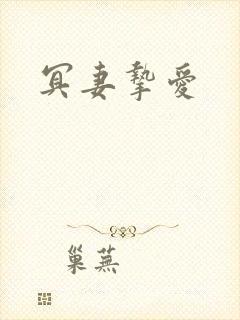 冥妻摯愛
巢蕪